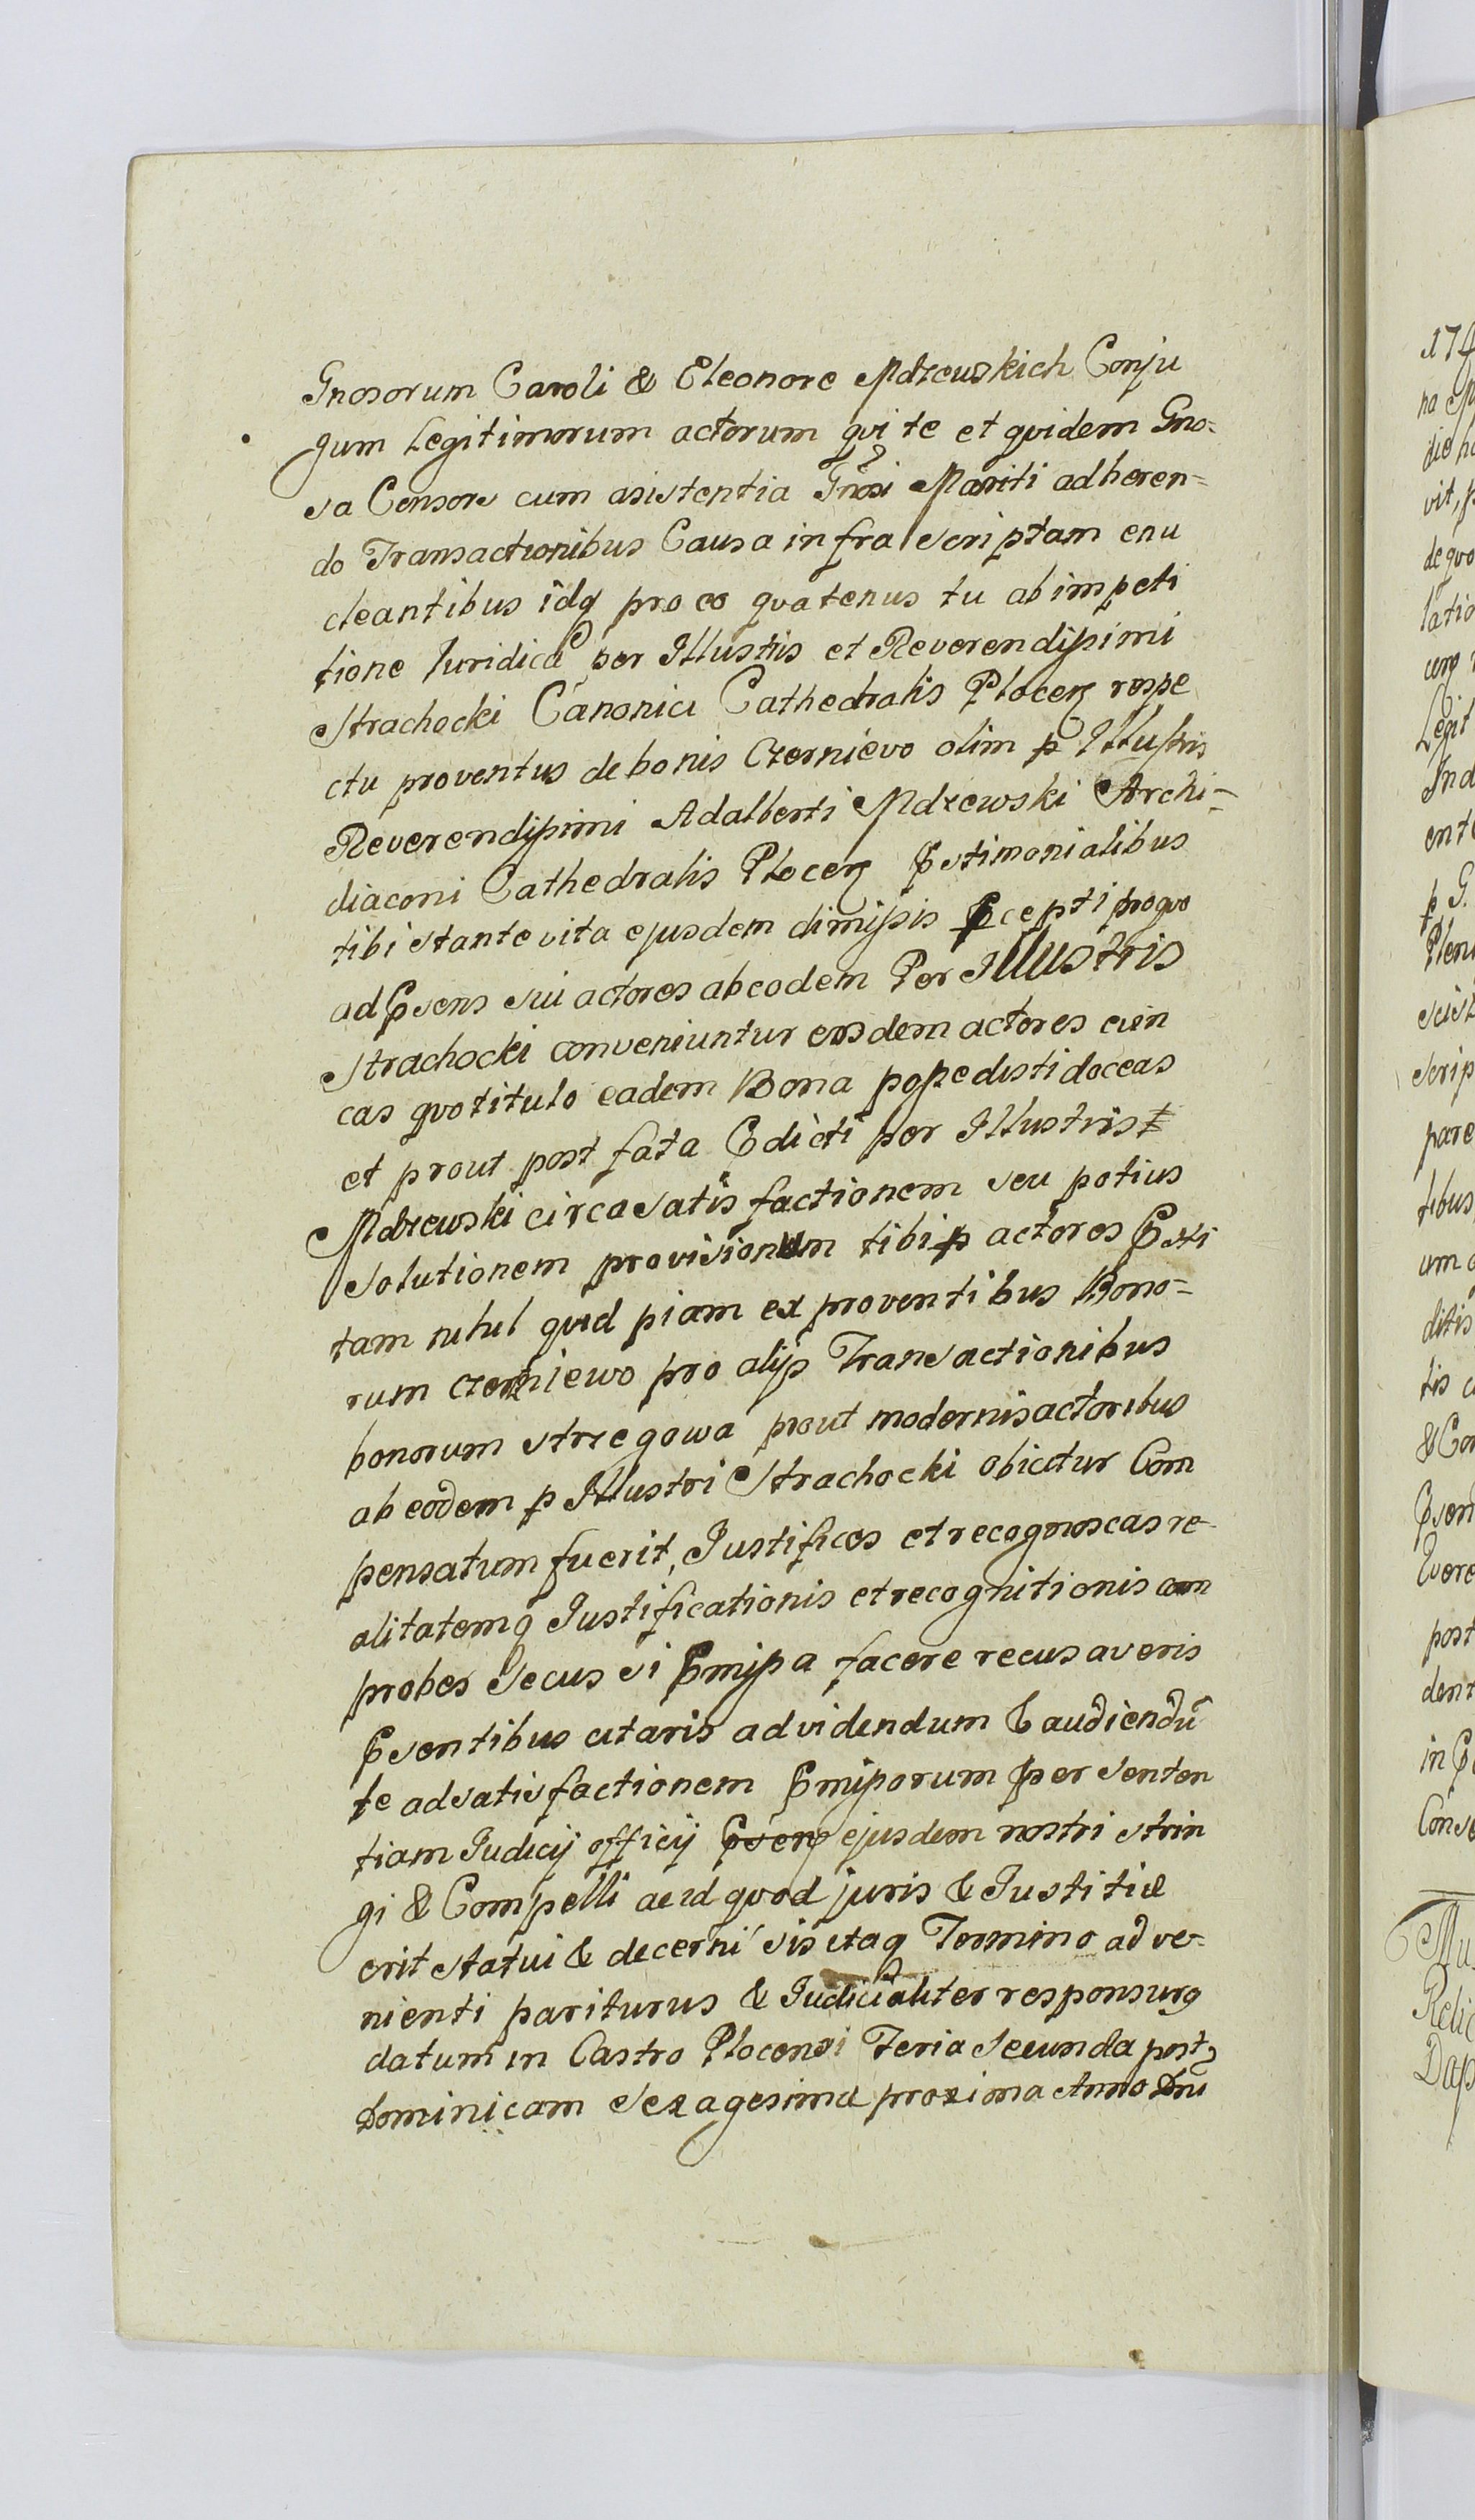 Gnosorum Caroli & Eleonore Mdzewskich Conju
gum Legitimorum actorum qvi te et qvidem Gno=
sa Censore cum asistentia Gnosi Mariti adheren=
do Transactionibus Causa infra scriptam enu
cleantibus idq pro eo qvatenus tu ab impeti
tione Iuridica per Illustris et Reverendissimi
Strachocki Canonici Cathedralis Plocen respe
ctu proventus de bonis Czernievo olim p Illustris
Reverendissimi Adalberti Mdzewski Archi=
diaconi Cathedralis Plocen Pstimonialibus
tibi stante vita ejusdem dimissis Pcepti proqvo
ad Psens sui actores ab eodem Per Illustris
Strachocki conveniuntur eosdem actores evin
cas qvo titulo eadem Bona possedisti doceas
et prout post fata Pdicti per Illustris
Mdzewski circa satis factionem seu potius
solutionem provisionum tibi p actores Psti
tam nihil qvid piam ex proventibus Bono=
rum Czerniewo pro alijs Transactionibus
bonorum strzegowa prout modernis actoribus
ab eodem p Illustri Strachocki obicitur Com
pensatum fuerit, Justifices et recognoscas re
alitatemq Justificationis et recognitionis com
probes Secus si Pmissa facere recusaveris
Psentibus citaris ad videndum & audiendũ
te ad satis factionem Pmissorum per senten
tiam Judicij officij Psen ejusdem nostri strin
gi & Compelli ac id qvod juris & Justitiæ
erit statui & decerni sis itaq Termino adve-
nienti pariturus & Judicialiter responsurg
datum in Castro Plocensi Feria Secunda post
Dominicam Sexagesimæ proxima Anno Dni
174